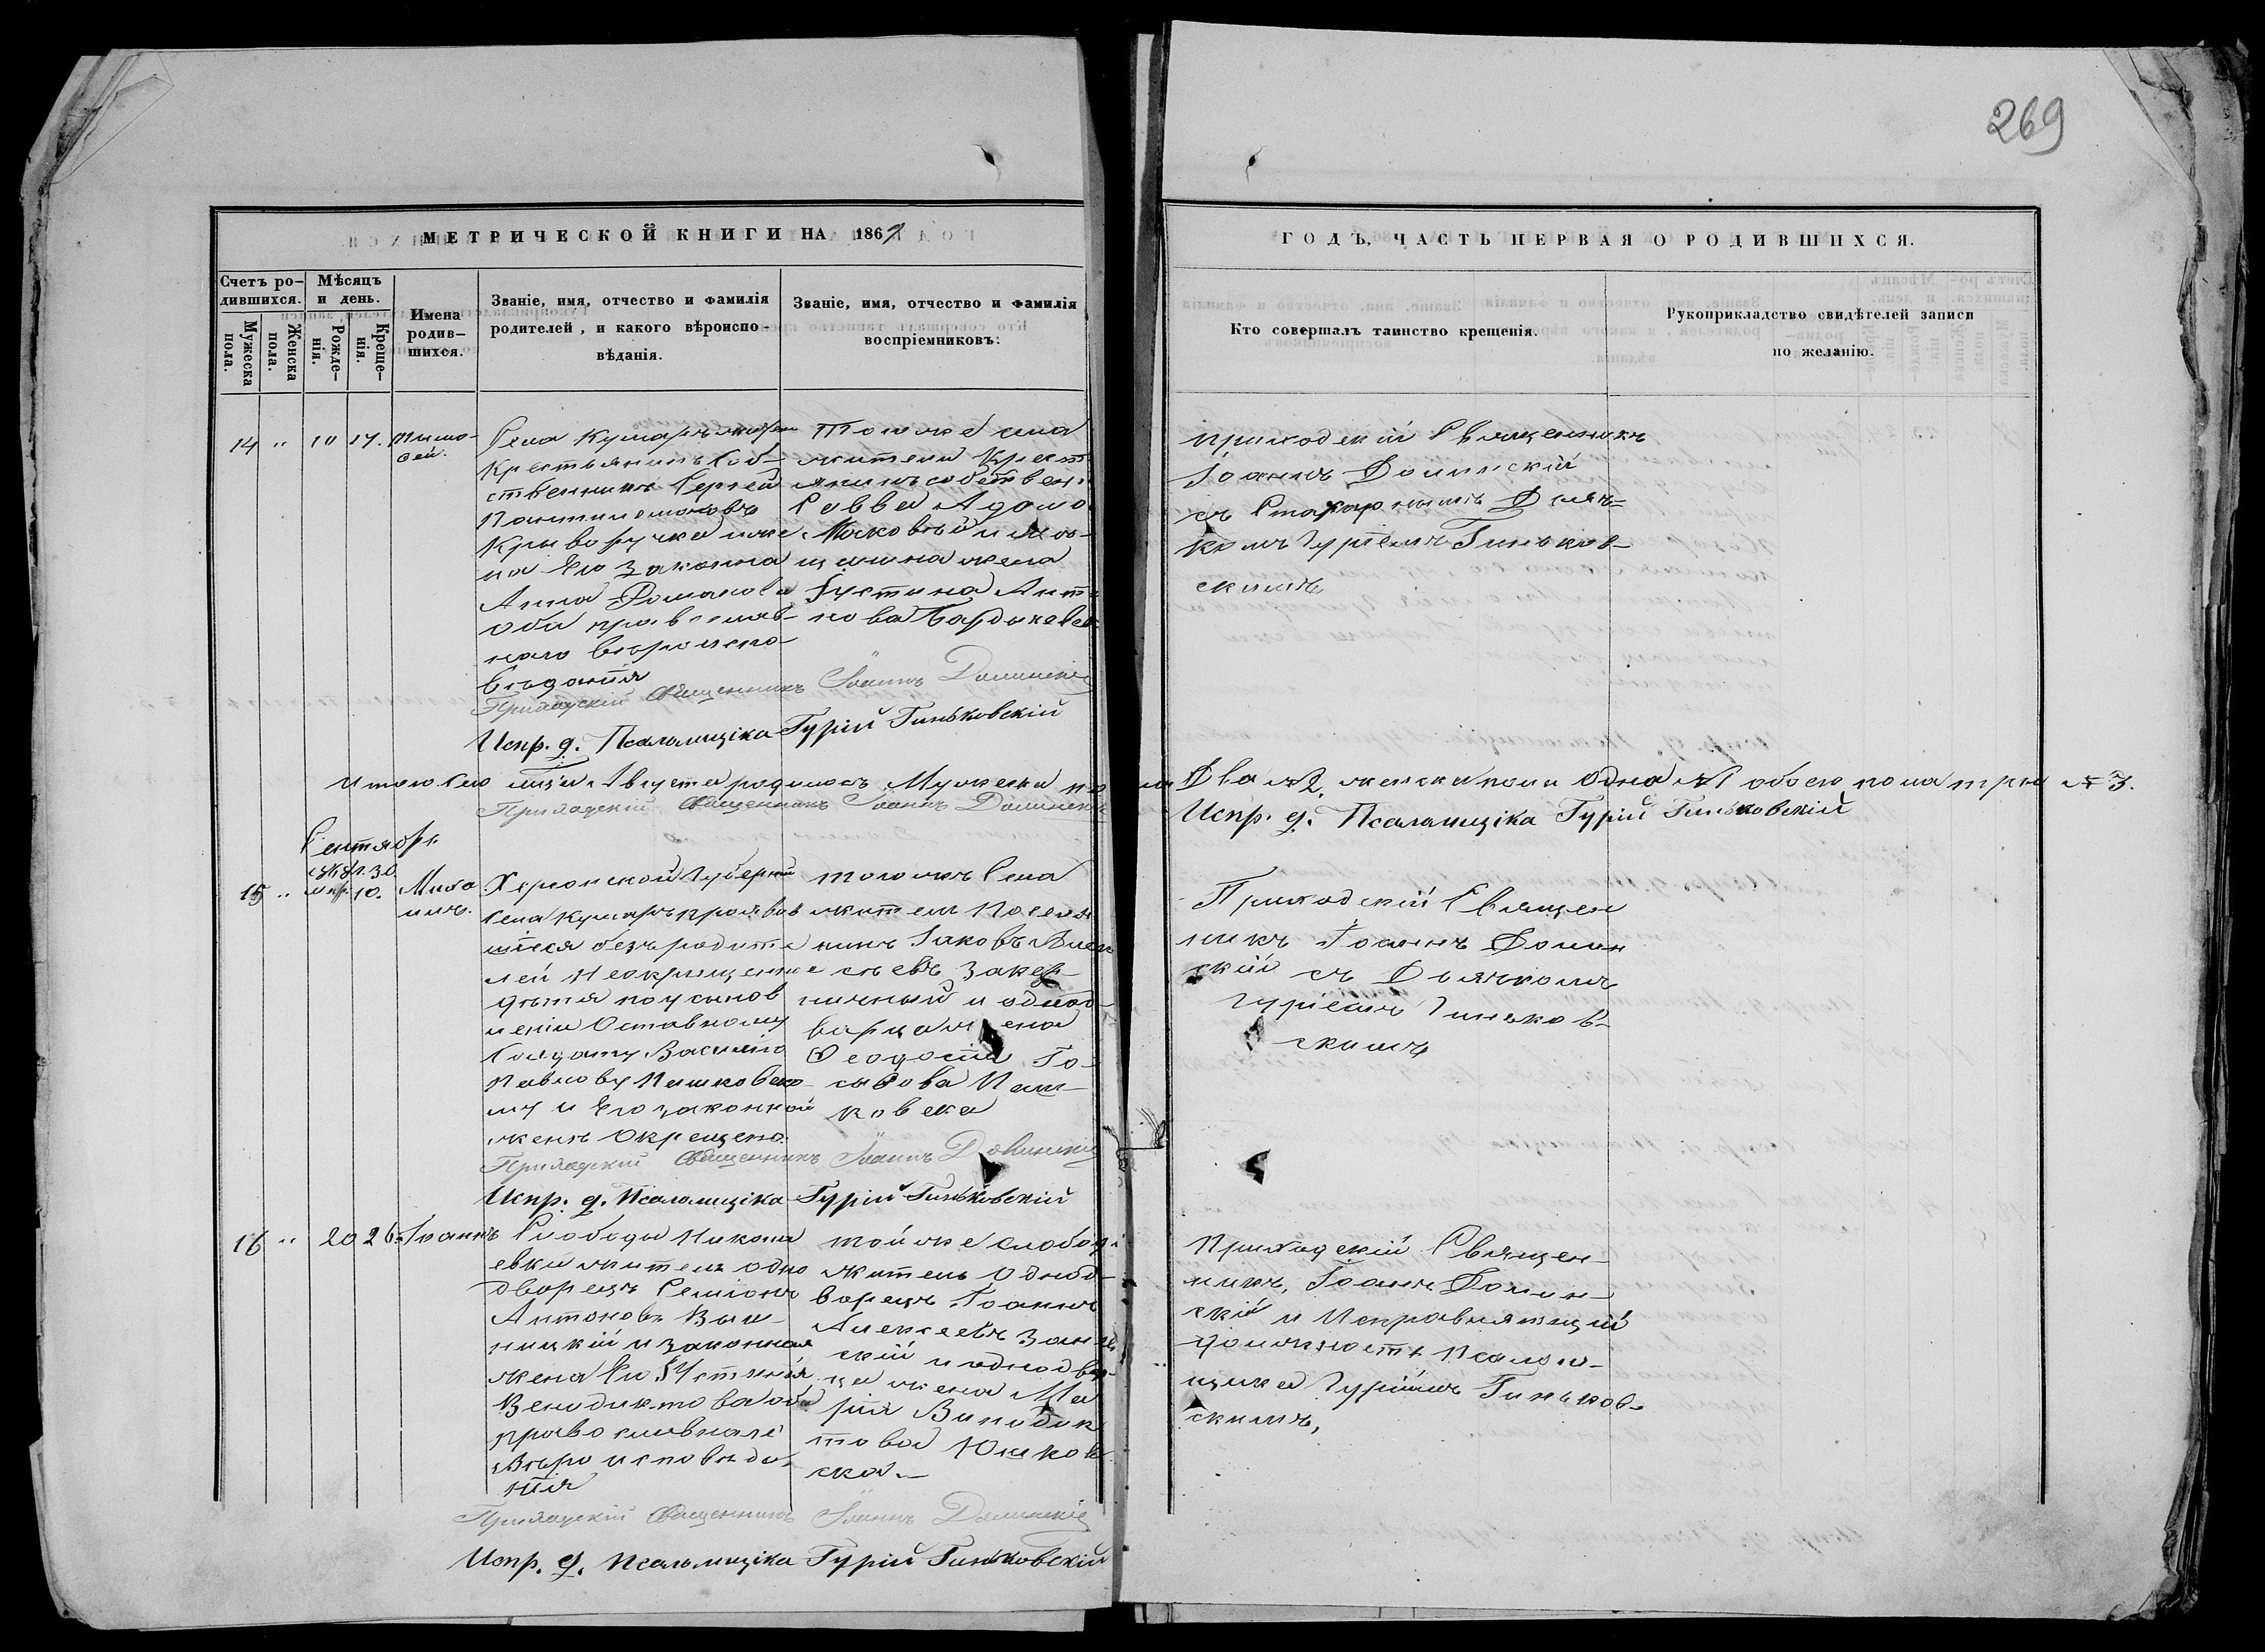 269
МЕТРИЧЕСКОЙ КНИГИ НА 1869
ГОДЪ, ЧАСТЬ ПЕРВАЯ О РОДИВШИХСЯ.
Счетъ ро-
дившихся.
Мужеска пола.
Женска пола.
Мѣсяцъ
и день.
Рожде-
нія.
Креще-
нія.
Имена
родив-
шихся.
Званіе, имя, отчество и фамилія
родителей, и какого вѣроиспо-
вѣданія.
Званіе, имя, отчество и фамилія
воспріемниковъ.
Кто совершалъ таинство крещенія.
Рукоприкладство свидѣтелей записи
по желанію.
14 " 10 17. Тимо-
ѳей.
Села Кумаръ
Крестьянинъ Соб-
ственникъ Сергей
Пантилемоновъ
Криворучка и же
на Его законна
Анна Романова
оба православ-
наго вѣроиспо-
вѣданія
Того же села
жители Крест
янинъ собствен
Савва Адамо
Маковѣй и
щина жена
Іустина Ант
нова
Приходскій Священникъ
Іоаннъ Долинскій
съ
комъ Гуріемъ Гиньков-
скимъ
Приходскій Священникъ Іоаннъ Долинскій
Испр. д. Псаломщика Гурій Гиньковскій
Итого сего мца Августа родилось Мужеска пола Два № 2, женска пола Одна № 1 обоего пола три № 3.
Приходскій Священникъ Іоаннъ Долинскій
Испр. д. Псаломщика Гурій Гиньковскій
Сентябрь
15 " 10. Миха
илъ.
Херсонской Губерніи
села Кумаръ прояв
шееся безъ родите
лей Неокрещенное
дѣтя поусынов
ленію Оставному
Солдату Василію
Павлову Пашковско
му и Его законной
женѣ Окрещено.
того жъ Села
житель Поселя
нинъ Іаковъ Алек
сѣевъ Закер
ничный и однод-
ворца жена
Ѳеодосія Го-
Паш-
ковска
Приходскій Священ
никъ Іоаннъ Долин
скій съ Дьячкомъ
Гуріемъ Гиньков-
скимъ
Приходскій Священникъ Іоаннъ Долинскій
Испр. д. Псаломщика Гурій Гиньковскій
16 " 20 26 Іоаннъ
Слободы Никола
евки житель одно
дворецъ Семіонъ
Антоновъ Виш-
ницкій и законная
жена Его Устинія
Венидиктова оба
православнаго
Вѣроисповѣда-
нія
той же слободы
житель Однод-
ворецъ Іоаннъ
Алексеевъ
скій и однодвор
ца жена Ма
рія Винидик
това Юшков
ска.
Приходскій Священ-
никъ, Іоаннъ Долин-
скій и Исправляющій
должность Псалом-
щика Гуріемъ Гиньков-
скимъ,
Приходскій Священникъ Іоаннъ Долинскій
Испр. д. Псаломщика Гурій Гиньковскій